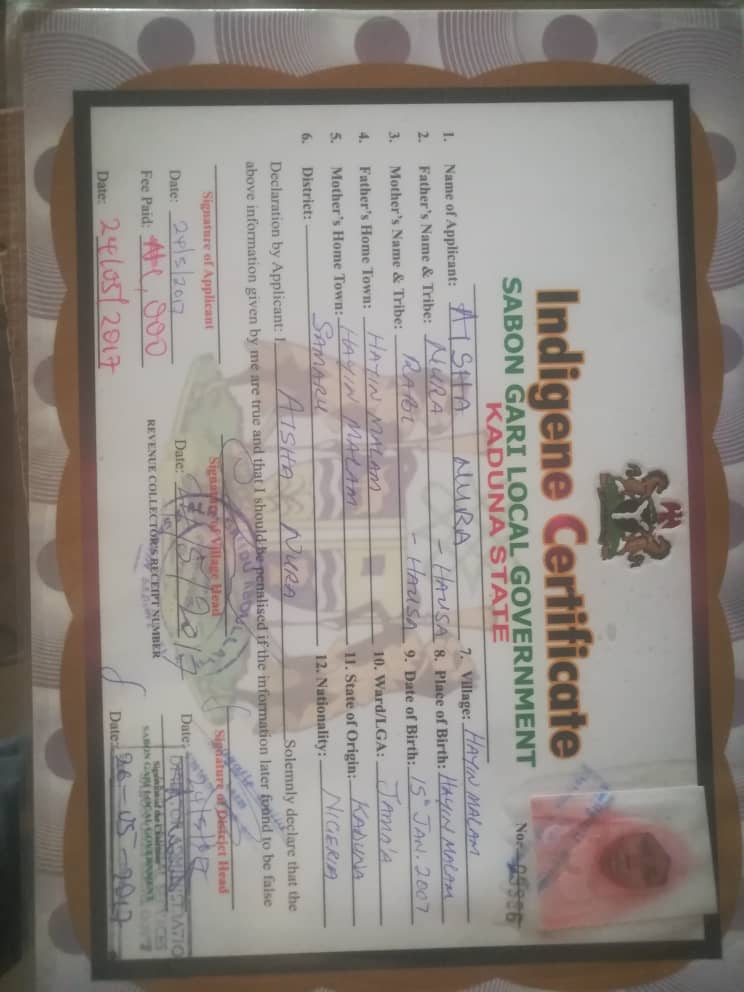 Indigene Certificate
SABON GARI LOCAL GOVERNMENT
KADUNA STATE
No:
1. Name of Applicant: AISHA NURA
2. Father's Name & Tribe: NURA - HAUSA
3. Mother's Name & Tribe: RABI - HAUSA
4. Father's Home Town: HAYIN MALAM
5. Mother's Home Town: HAYIN MALAM
6. District: SAMARU
7. Village: HAYIN MALAM
8. Place of Birth: HAYIN MALAM
9. Date of Birth: 15th JAN. 2007
10. Ward/LGA: JAMA'A
11. State of Origin: KADUNA
12. Nationality: NIGERIA
Declaration by Applicant: I AISHA NURA Solemnly declare that the
above information given by me are true and that I should be penalised if the information later found to be false
Signature of Applicant
Signature of Village Head
Signature of District Head
Date: 24/5/2017
Date:
Date:
Fee Paid:
REVENUE COLLECTOR'S RECEIPT NUMBER
SABON GARI LOCAL GOVERNMENT
Date: 24/05/2017
Date: 26-05-2017